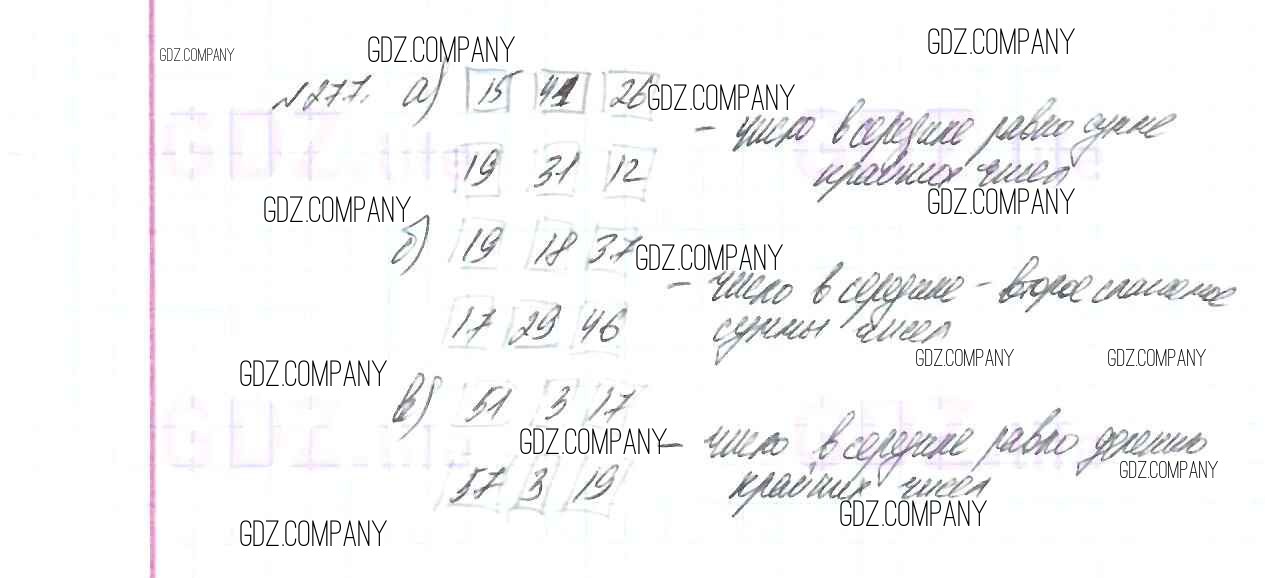 GDZ.COMPANY
GDZ.COMPANY
GDZ.COMPANY
№277. а) 15 41 26
GDZ.COMPANY
– число в середине равно сумме
19 31 12
крайних чисел
GDZ.COMPANY
GDZ.COMPANY
б) 19 18 37
GDZ.COMPANY
– число в середине – второе слагаемое
17 29 46
суммы чисел
GDZ.COMPANY
GDZ.COMPANY
GDZ.COMPANY
в) 51 3 17
GDZ.COMPANY
– число в середине равно делению
GDZ.COMPANY
57 3 19
крайних чисел
GDZ.COMPANY
GDZ.COMPANY